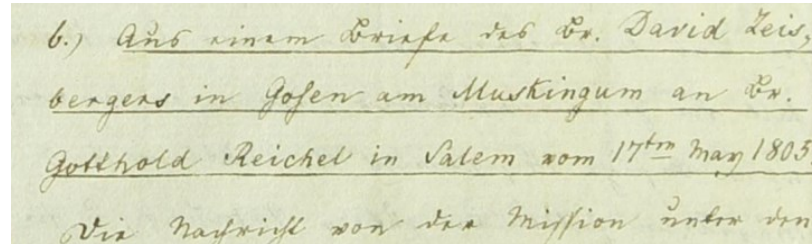 b.) Aus einem Briefe des Br. David Zeis,
bergers in Gosen am Muskingum an Br.
Gotthold Reichel in Salem vom 17ten May 1805
Die Nachricht von der Mission unter den